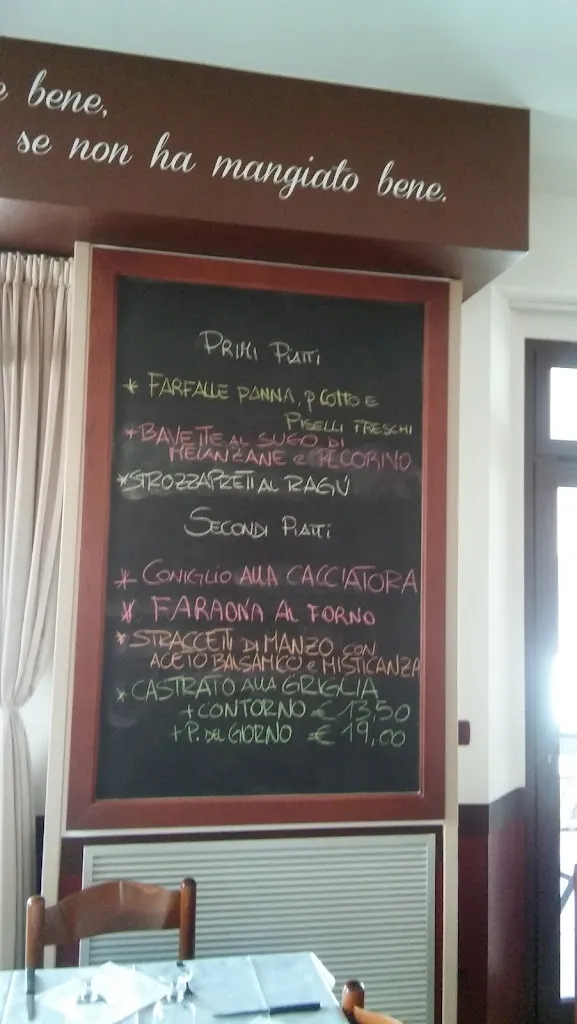 e bene,
se non ha mangiato bene.
PRIMI PIATTI
* FARFALLE PANNA, P. COTTO E
PISELLI FRESCHI
* BAVETTE AL SUGO DI
MELANZANE E PECORINO
* STROZZAPRETI AL RAGÚ
SECONDI PIATTI
* CONIGLIO ALLA CACCIATORA
* FARAONA AL FORNO
* STRACCETTI DI MANZO CON
ACETO BALSAMICO E MISTICANZA
* CASTRATO ALLA GRIGLIA
+ CONTORNO € 13,50
+ P. DEL GIORNO € 19,00